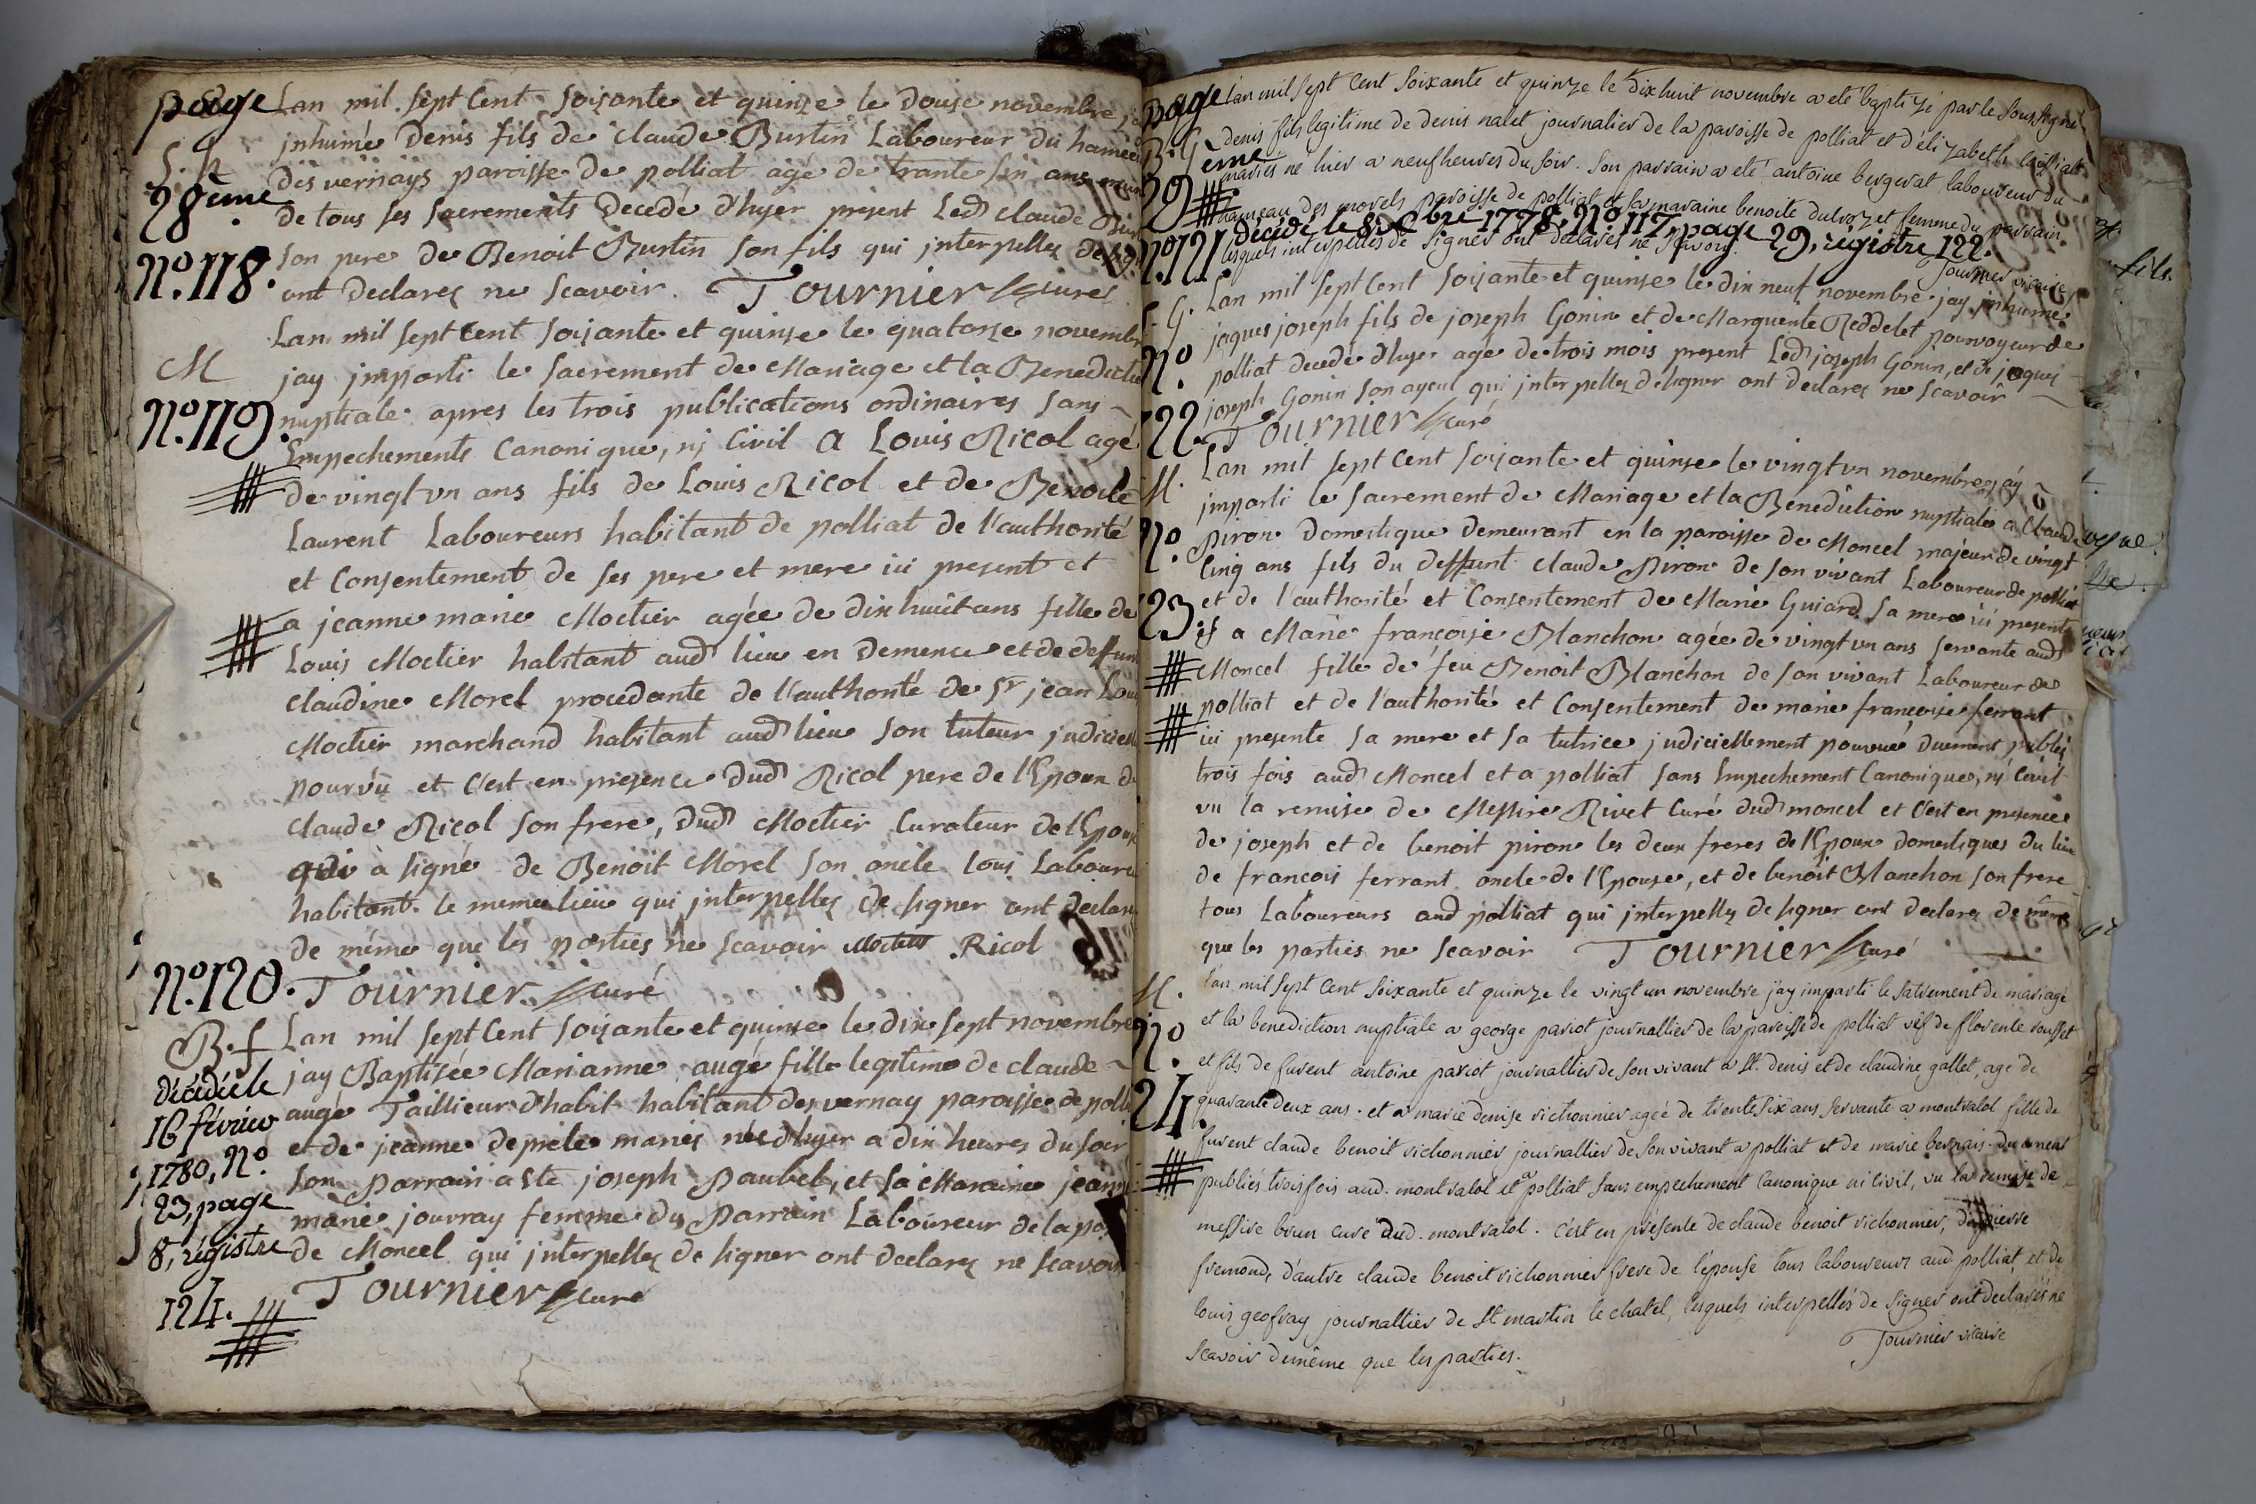 page
S. G
28ème
Nº. 118.
Lan mil sept Cent soisante et quinse le douse novembre
jnhumé Denis fils de Claude Burtin Laboureur du hameau
des vernays paroisse de polliat agé de trante six ans
de tous ses sacrements Decedé d'hyer present Led Claude
son pere de Benoit Burtin son fils qui jnterpelles de
ont Declarez ne scavoir. Tournier curé
M
Nº. 119.
Lan mil sept Cent soisante et quinse le quatorse novembre
jay jmparti le sacrement de Mariage et la Benediction
nuptiale apres les trois publications ordinaires sans
Empechements Canonique, nj Civil a Louis Ricol agé
de vingt vn ans fils de Louis Ricol et de Benoite
Laurent Laboureurs habitant de polliat de l'authorité
et Consentement de ses pere et mere ici present et
a jeanne marie Moctier agée de dixhuit ans fille de
Louis Moctier habitant aud lieu en Demence et de deffunte
Claudine Morel procedante de l'authorité de Sr jean Louis
Moctier marchand habitant aud lieu son tuteur judiciel
pourvû et C'est en presence Dud Ricol pere de l'Epoux de
Claude Ricol son frere, Dud Moctier Curateur de l'Epouse
qui à signé de Benoit Morel son oncle tous Laboureurs
habitant le meme lieu qui jnterpelles de signer ont declaré
de même que les parties ne scavoir Moctier Ricol
Nº. 120.
Tournier curé
B. f
Décédée le
16 février
1780, Nº
23, page
8, régistre
124.
Lan mil sept Cent soisante et quinse le dix sept novembre
jay Baptisée Marianne augé fille legitime de claude
augé Taillieur d'habit habitant des vernay paroisse de polliat
et de jeanne depréle mariés née d'hyer a dix heures du soir
son parrain a Eté joseph Paubel, et sa Maraine jeanne
marie jourray femme du Parrain Laboureur de la
de Moncel qui jnterpelles de signer ont declarez ne scavoir
Tournier curé
page
B. G.
29ème
Nº. 121.
L'an mil sept Cent soixante et quinze le dix huit novembre a eté baptizé par le soussigné
denis fils legitime de denis nalet journalier de la paroisse de polliat et d'elizabeth
mariés ne hier a neuf heures du soir. Son parrain a eté antoine bergerat laboureur du
hameau des morels paroisse de polliat et sa maraine benoite dulroz et femme du parrain
décédé le 8 Xbre 1778, Nº. 117, page 29, régistre 122.
lesquels interpellés de signer ont declarés ne scavoir
Tournier vicaire
S. G.
Nº
122.
Lan mil sept Cent soisante et quinse le dix neuf novembre jay jnhumé
jaques joseph fils de joseph Gonin et de Marguerite Reddelet pourvoyeur de
polliat decedé d'hyer agé de trois mois present Led joseph Gonin, et de jaques
joseph Gonin son ayeul qui jnterpellez de signer ont declarez ne scavoir
Tournier curé
M.
Nº
123.
Lan mil sept Cent soisante et quinse le vingt vn novembre jáy
jmparti le sacrement de Mariage et la Benediction nuptiale a Claude
Piron Domestique Demeurant en la paroisse de Moncel majeur de vingt
Cinq ans fils du deffunt Claude Piron de son vivant Laboureur de polliat
et de l'authorité et Consentement de Marie Guiard sa mere ici presente
et a Marie françoise Blanchon agée de vingt vn ans servante aud
Moncel fille de feu Benoit Blanchon de son vivant Laboureur de
polliat et de l'authorité et Consentement de marie françoise ferrant
ici presente sa mere et sa tutrice judiciellement pourvuë duement publiés
trois fois aud Moncel et a polliat sans Empechement Canonique, nj Civil
vu la remise de Messire Rivet Curé dud moncel et C'est en presence
de joseph et de benoit piron les deux freres de l'Epoux domestiques du lieu
de francois ferrant oncle de l'Epouse, et de benoit Blanchon son frere
tous Laboureurs aud polliat qui jnterpellez de signer ont declarez de même
que les parties ne scavoir Tournier curé
M.
Nº
124.
l'an mil sept Cent soixante et quinze le vingt un novembre j'ay imparti le sacrement de mariage
et la benediction nuptiale a george pariot journallier de la paroisse de polliat vëf de florente rousset
et fils de furent antoine pariot journallier de son vivant a St. denis et de claudine gallet, age de
quarante deux ans. et a marie denise vichonnier agée de trente six ans servante a montvalol fille de
furent claude benoit vichonnier journallier de son vivant a polliat et de marie bernais. duement
publiés trois fois aud. montvalol et a polliat sans empechement Canonique ni civil, vu la remise de
messire brun curé dud. montvalol. c'est en présente de claude benoit vichonnier, d'pierre
fremond, d'autre claude benoit vichonnier frere de l'épouse tous laboureurs aud polliat, et de
louis geofray journallier de St martin le chatel, lesquels interpellés de signer ont declarés ne
scavoir demême que les parties.
Tournier vicaire
fils